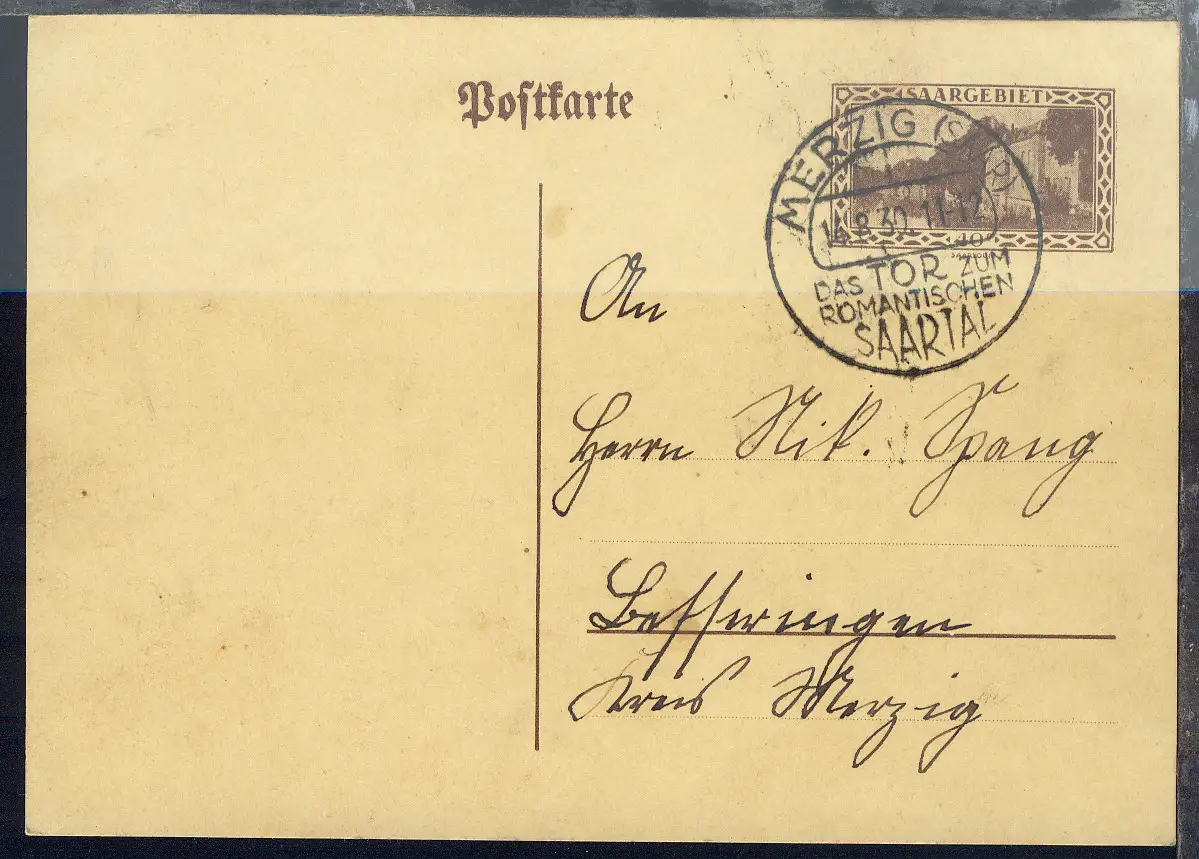 Postkarte
SAARGEBIET
MERZIG (SAAR)
14.8.30. 11-12
40
DAS TOR ZUM
ROMANTISCHEN
SAARTAL
An
Herrn Nik. Spang
Besseringen
Kreis Merzig